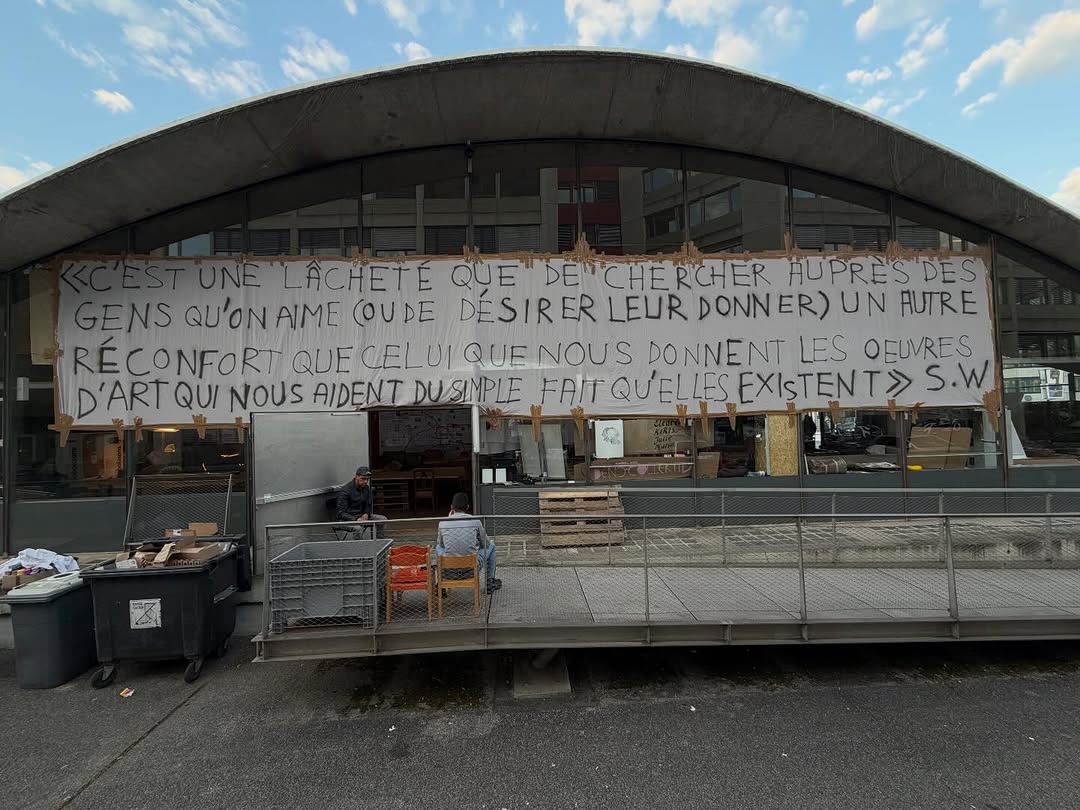 «C'EST UNE LÂCHETÉ QUE DE CHERCHER AUPRÈS DES
GENS QU'ON AIME (OU DE DÉSIRER LEUR DONNER) UN AUTRE
RÉCONFORT QUE CELUI QUE NOUS DONNENT LES OEUVRES
D'ART QUI NOUS AIDENT DU SIMPLE FAIT QU'ELLES EXISTENT» S.W